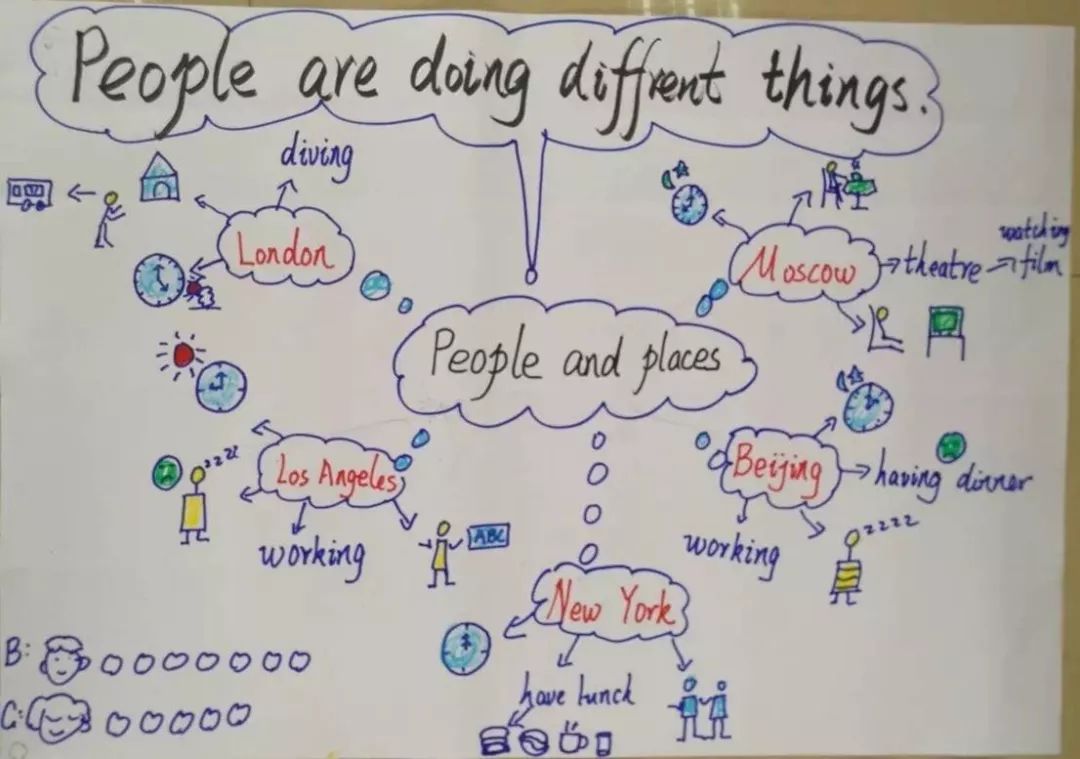 People are doing diffrent things.
diving
London
Moscow
theatre
watching
film
People and places
zzzz
Los Angeles
working
ABC
Beijing
having dinner
working
zzzz
New York
have lunch
B:
G: